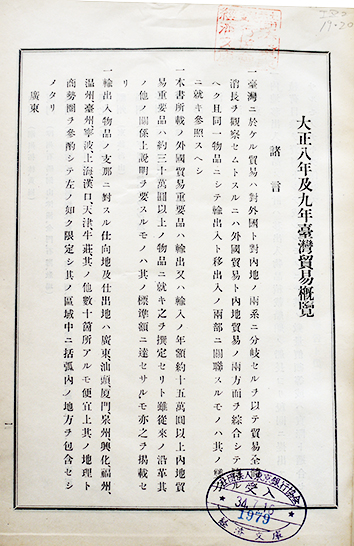 大正八年及九年臺灣貿易概覽
諸言
一臺灣ニ於ケル貿易ハ對外國ト對內地ノ兩系ニ分岐セルヲ以テ貿易全
消長ヲ觀察セムトスルニハ外國貿易ト內地貿易ノ兩方面ヲ綜合シテ
ヘク且同一物品ニシテ輸出入ト移出入ノ兩部ニ關聯スルモノハ其ノ
ニ就キ參照スヘシ
一本書所載ノ外國貿易重要品ハ輸出又ハ輸入ノ年額約十五萬圓以上內地貿
易重要品ハ約三十萬圓以上ノ物品ニ就キ之ヲ撰定セリト雖從來ノ沿革其
ノ他ノ關係上說明ヲ要スルモノハ其ノ標準額ニ達セサルモ亦之ヲ揭載セ
リ
一輸出入物品ノ支那ニ對スル仕向地及仕出地ハ廣東、汕頭、厦門、泉州、興化、福州、
温州、臺州、寧波、上海、漢口、天津、牛莊其ノ他數十箇所アルモ便宜上其ノ地理ト
商勢圈ヲ參酌シテ左ノ如ク限定シ其ノ區域中ニ括弧內ノ地方ヲ包含セシ
メタリ
廣東
社団法人東京銀行協会
受入
1979
經濟文庫